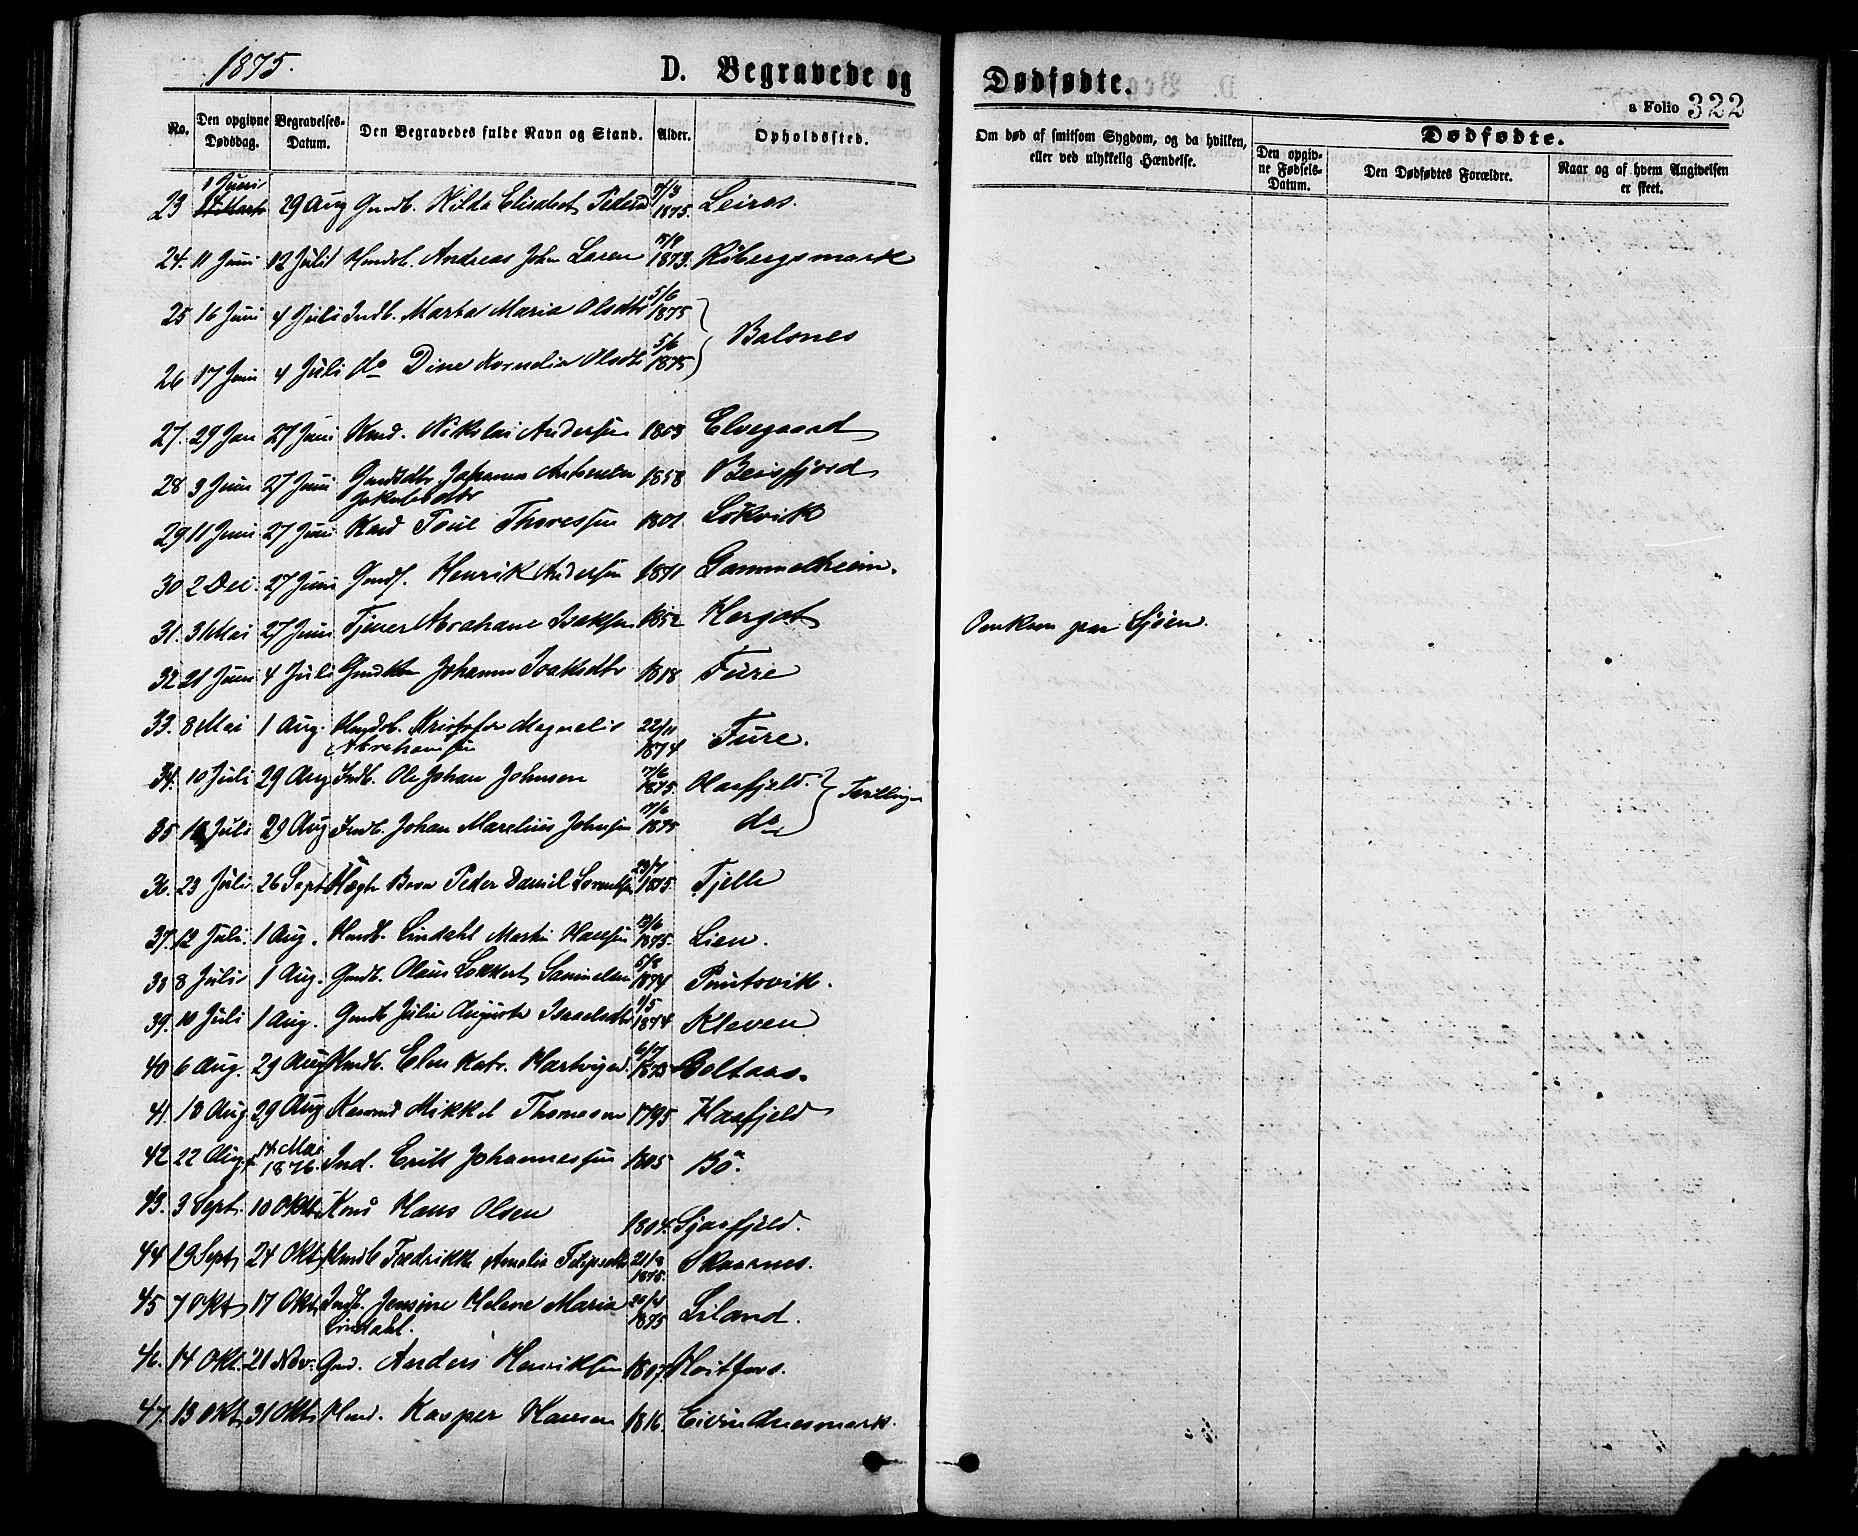 1875.
D. Begravede og Dødfødte.
a Folio 322
No.
Den opgivne Dødsdag.
Begravelses-Datum.
Den Begravedes fulde Navn og Stand.
Alder.
Opholdssted.
Om død af smitsom Sygdom, og da hvilken, eller ved ulykkelig Hændelse.
Dødfødte.
Den opgivne Fødsels-Datum.
Den Dødfødtes Forældre.
Naar og af hvem Angivelsen er skeet.
23 29 Aug Gmdb. Hilda Elisabet 7/3 1875. Leiros.
24. 11 Juni 12 Juli Hmdsb. Andreas John Larsen 1873.
25 16 Juni 4 Juli Indb. Marta Maria Olsdtr 5/6 1875
Balsnes
26 17 Juni 4 Juli do Dine Kornelia Olsdtr 5/6 1875
27. 29 Jan 27 Juni Kmd. Nikolai Andersen 1803 Elvegaard
28 3 Juni 27 Juni Johanna 1858 Beisfjord
Jakobsdtr
29 11 Juni 27 Juni Kmd Thoressen 1801 Lökvik
30 2 Dec. 27 Juni Gmds. Henrik Andersen 1871 Gammelheim.
31. 31 Mai 27 Juni Tjener Abrahams Isaksen 1852 Hergot
Omkom paa Sjøen.
32 21 Juni 4 Juli Johanna Isaksdtr 1818 Fure
33. 8 Mai 1 Aug. Hmdsb. Kristofer 22/11 1874 Fure.
Abrahamsen
34. 10 Juli 29 Aug Indb. Ole Johan Johnsen 17/6 1875. Haafjeld. Tvillinger
35 Juli 29 Aug Indb. Johan Marelius Johnsen 17/6 1875 do
36. 23 Juli 26 Sept Barn Peder Daniel 1875. Tjelle
37. 12 Juli. 1 Aug. Hmdb. Lindahl Martin Hansen 1875. Lien.
38 8 Juli 1 Aug. Gmdb. Olaus Lokkert 5/8 1874
39. 10 Juli 1 Aug. Gmdb Julie Auguste Israelsdtr 1874 Kleven
40 6 Aug. 29 Aug Hmdb. Elen Katr. Hartvigsd. 6/7 Boltaas.
41. 18 Aug 29 Aug Mikkel Thomesen 1795 Haafjeld
42 22 Aug. 14 Mai 1876. Ind. Erik Johannessen 1805 Bö.
43. 3 Sept. 10 Okt. Hans Olsen 1804.
44 19 Sept 24 Okt Hmdb Fredrikke Amalia 21/8 1875. Skaarnes.
45 7 Okt 17 Okt. Indb. Jensine Helene Maria 1875 Liland.
Lindahl.
46. 14 Okt. 21 Nov. Gmd. Anders Henriksen 1807.
47. 13 Okt 31 Okt Hmd. Kasper Hansen 1816. Eivindnesmark.